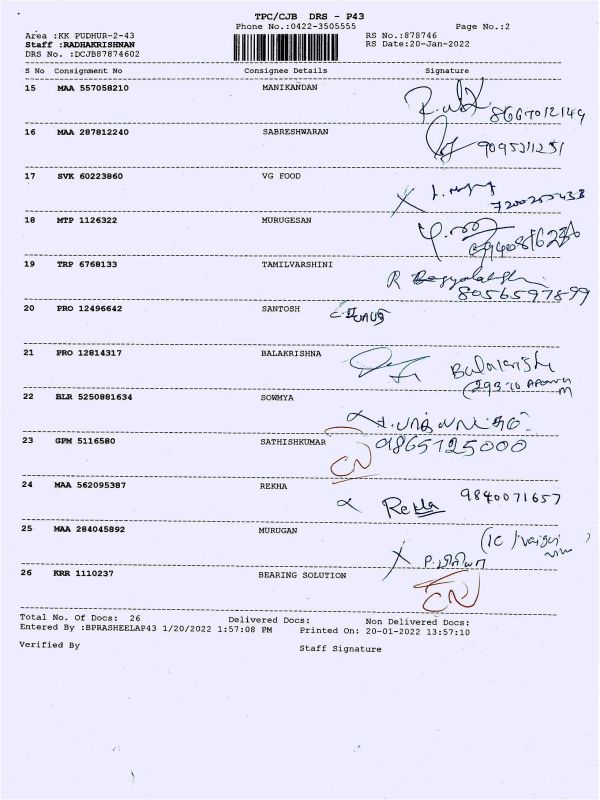 TPC/CJB DRS - P43
Phone No.:0422-3505555 Page No.:2
Area :KK PUDHUR-2-43 RS No.:878746
Staff :RADHAKRISHNAN RS Date:20-Jan-2022
DRS No. :DCJB87874602
S No Consignment No Consignee Details Signature
15 MAA 557058210 MANIKANDAN
8667012149
16 MAA 287812240 SABRESHWARAN
9095211251
17 SVK 60223860 VG FOOD
18 MTP 1126322 MURUGESAN
19 TRP 6768133 TAMILVARSHINI
8056597899
20 PRO 12496642 SANTOSH
21 PRO 12814317 BALAKRISHNA
22 BLR 5250881634 SOWMYA
23 GPM 5116580 SATHISHKUMAR 9865725000
CN
24 MAA 562095387 REKHA
Rekha 9840071657
25 MAA 284045892 MURUGAN
26 KRR 1110237 BEARING SOLUTION
CN
Total No. Of Docs: 26 Delivered Docs: Non Delivered Docs:
Entered By :BPRASHEELAP43 1/20/2022 1:57:08 PM Printed On: 20-01-2022 13:57:10
Verified By Staff Signature